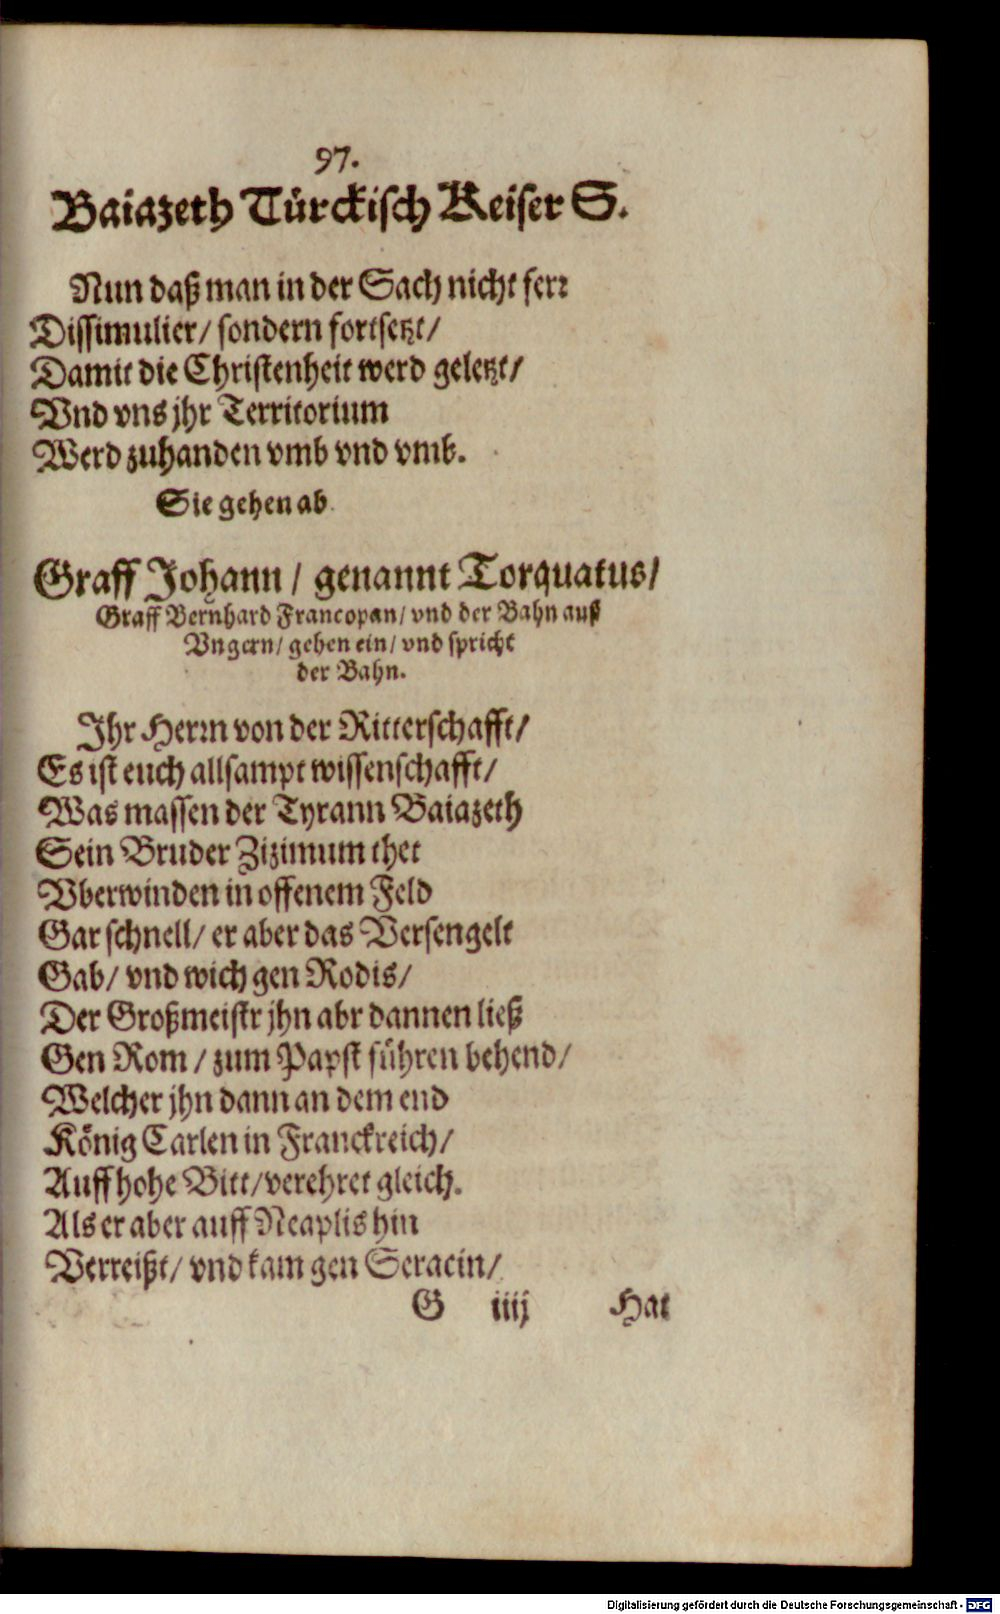 97.
Baiazeth Türckisch Keiser S.
Nun daß man in der Sach nicht ferr
Dissimulier/ sondern fortsetzt/
Damit die Christenheit werd geletzt/
Vnd vns jhr Territorium
Werd zuhanden vmb vnd vmb.
Sie gehen ab.
Graff Johann / genannt Torquatus/
Graff Bernhard Francopan/ vnd der Bahn auß
Vngern/ gehen ein/ vnd spricht
der Bahn.
Ihr Herrn von der Ritterschafft/
Es ist euch allsampt wissenschafft/
Was massen der Tyrann Baiazeth
Sein Bruder Zizimum thet
Vberwinden in offenem Feld
Gar schnell/ er aber das Versengelt
Gab/ vnd wich gen Rodis/
Der Großmeistr jhn abr dannen ließ
Gen Rom / zum Papst führen behend/
Welcher jhn dann an dem end
König Carlen in Franckreich/
Auff hohe Bitt/ verehret gleich.
Als er aber auff Neaplis hin
Verreißt/ vnd kam gen Seracin/
G iiij Hat
Digitalisierung gefördert durch die Deutsche Forschungsgemeinschaft - DFG